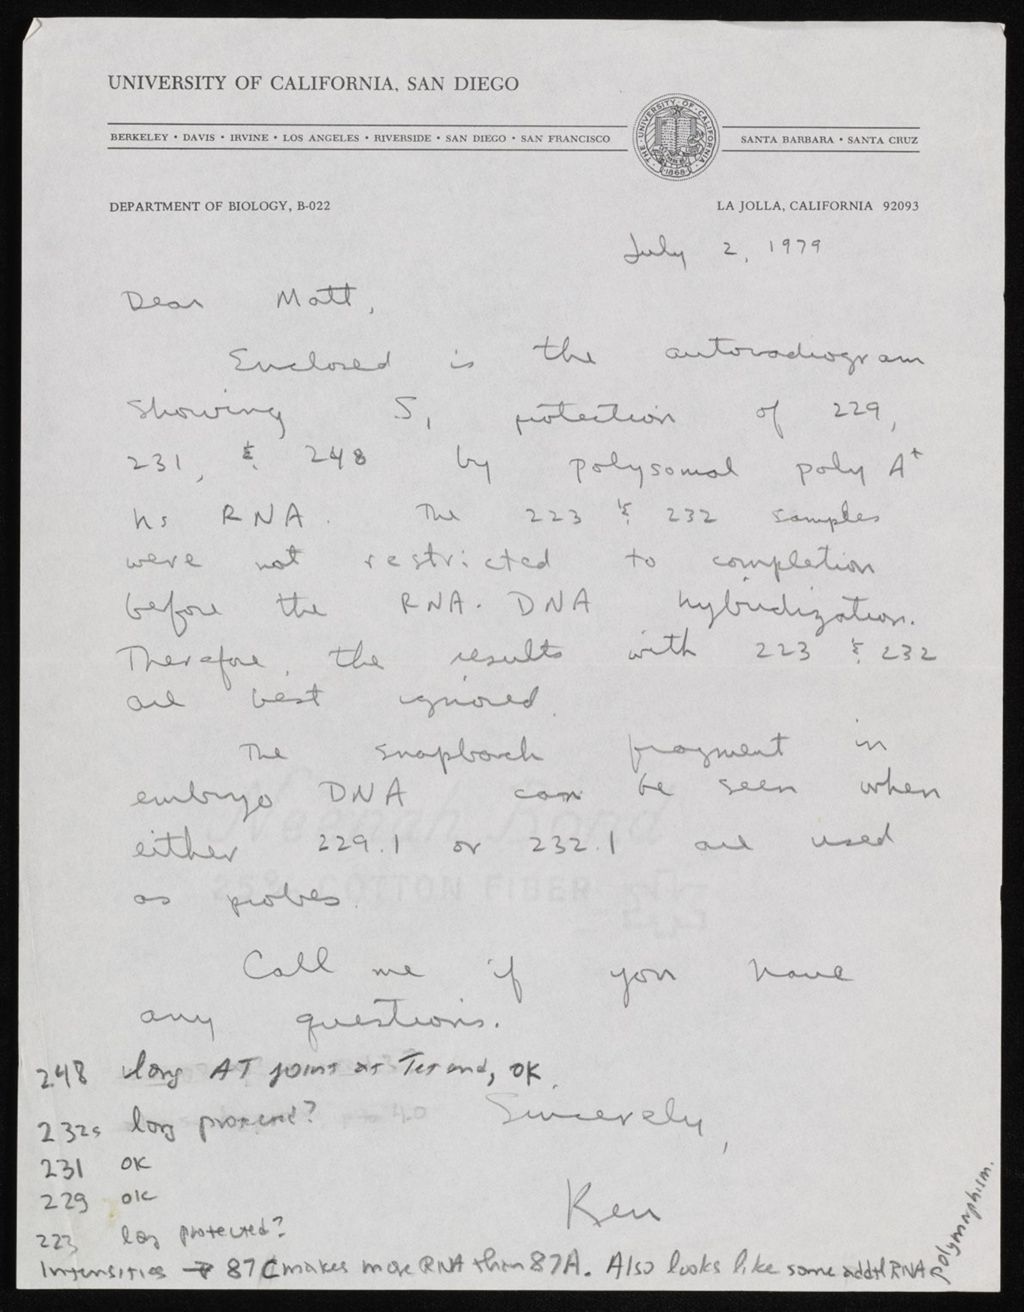 UNIVERSITY OF CALIFORNIA, SAN DIEGO
BERKELEY • DAVIS • IRVINE • LOS ANGELES • RIVERSIDE • SAN DIEGO • SAN FRANCISCO
SANTA BARBARA • SANTA CRUZ
THE UNIVERSITY OF CALIFORNIA 1868
DEPARTMENT OF BIOLOGY, B-022
LA JOLLA, CALIFORNIA 92093
July 2, 1979
Dear Matt,
Enclosed is the autoradiogram
showing S1 protection of 229,
231, & 248 by polysomal poly A+
hs RNA. The 223 & 232 samples
were not restricted to completion
before the RNA·DNA hybridization.
Therefore, the results with 223 & 232
are best ignored.
The snapback fragment in
embryo DNA can be seen when
either 229.1 or 232.1 are used
as probes.
Neenah Bond
25% COTTON FIBER
Call me if you have
any questions.
248 long AT joint at Tet end, OK.
Sincerely,
232s long protected?
231 OK
229 OK
Ken
223 long protected?
Intensities → 87C makes more RNA than 87A. Also looks like some addtl RNA polymorphism.